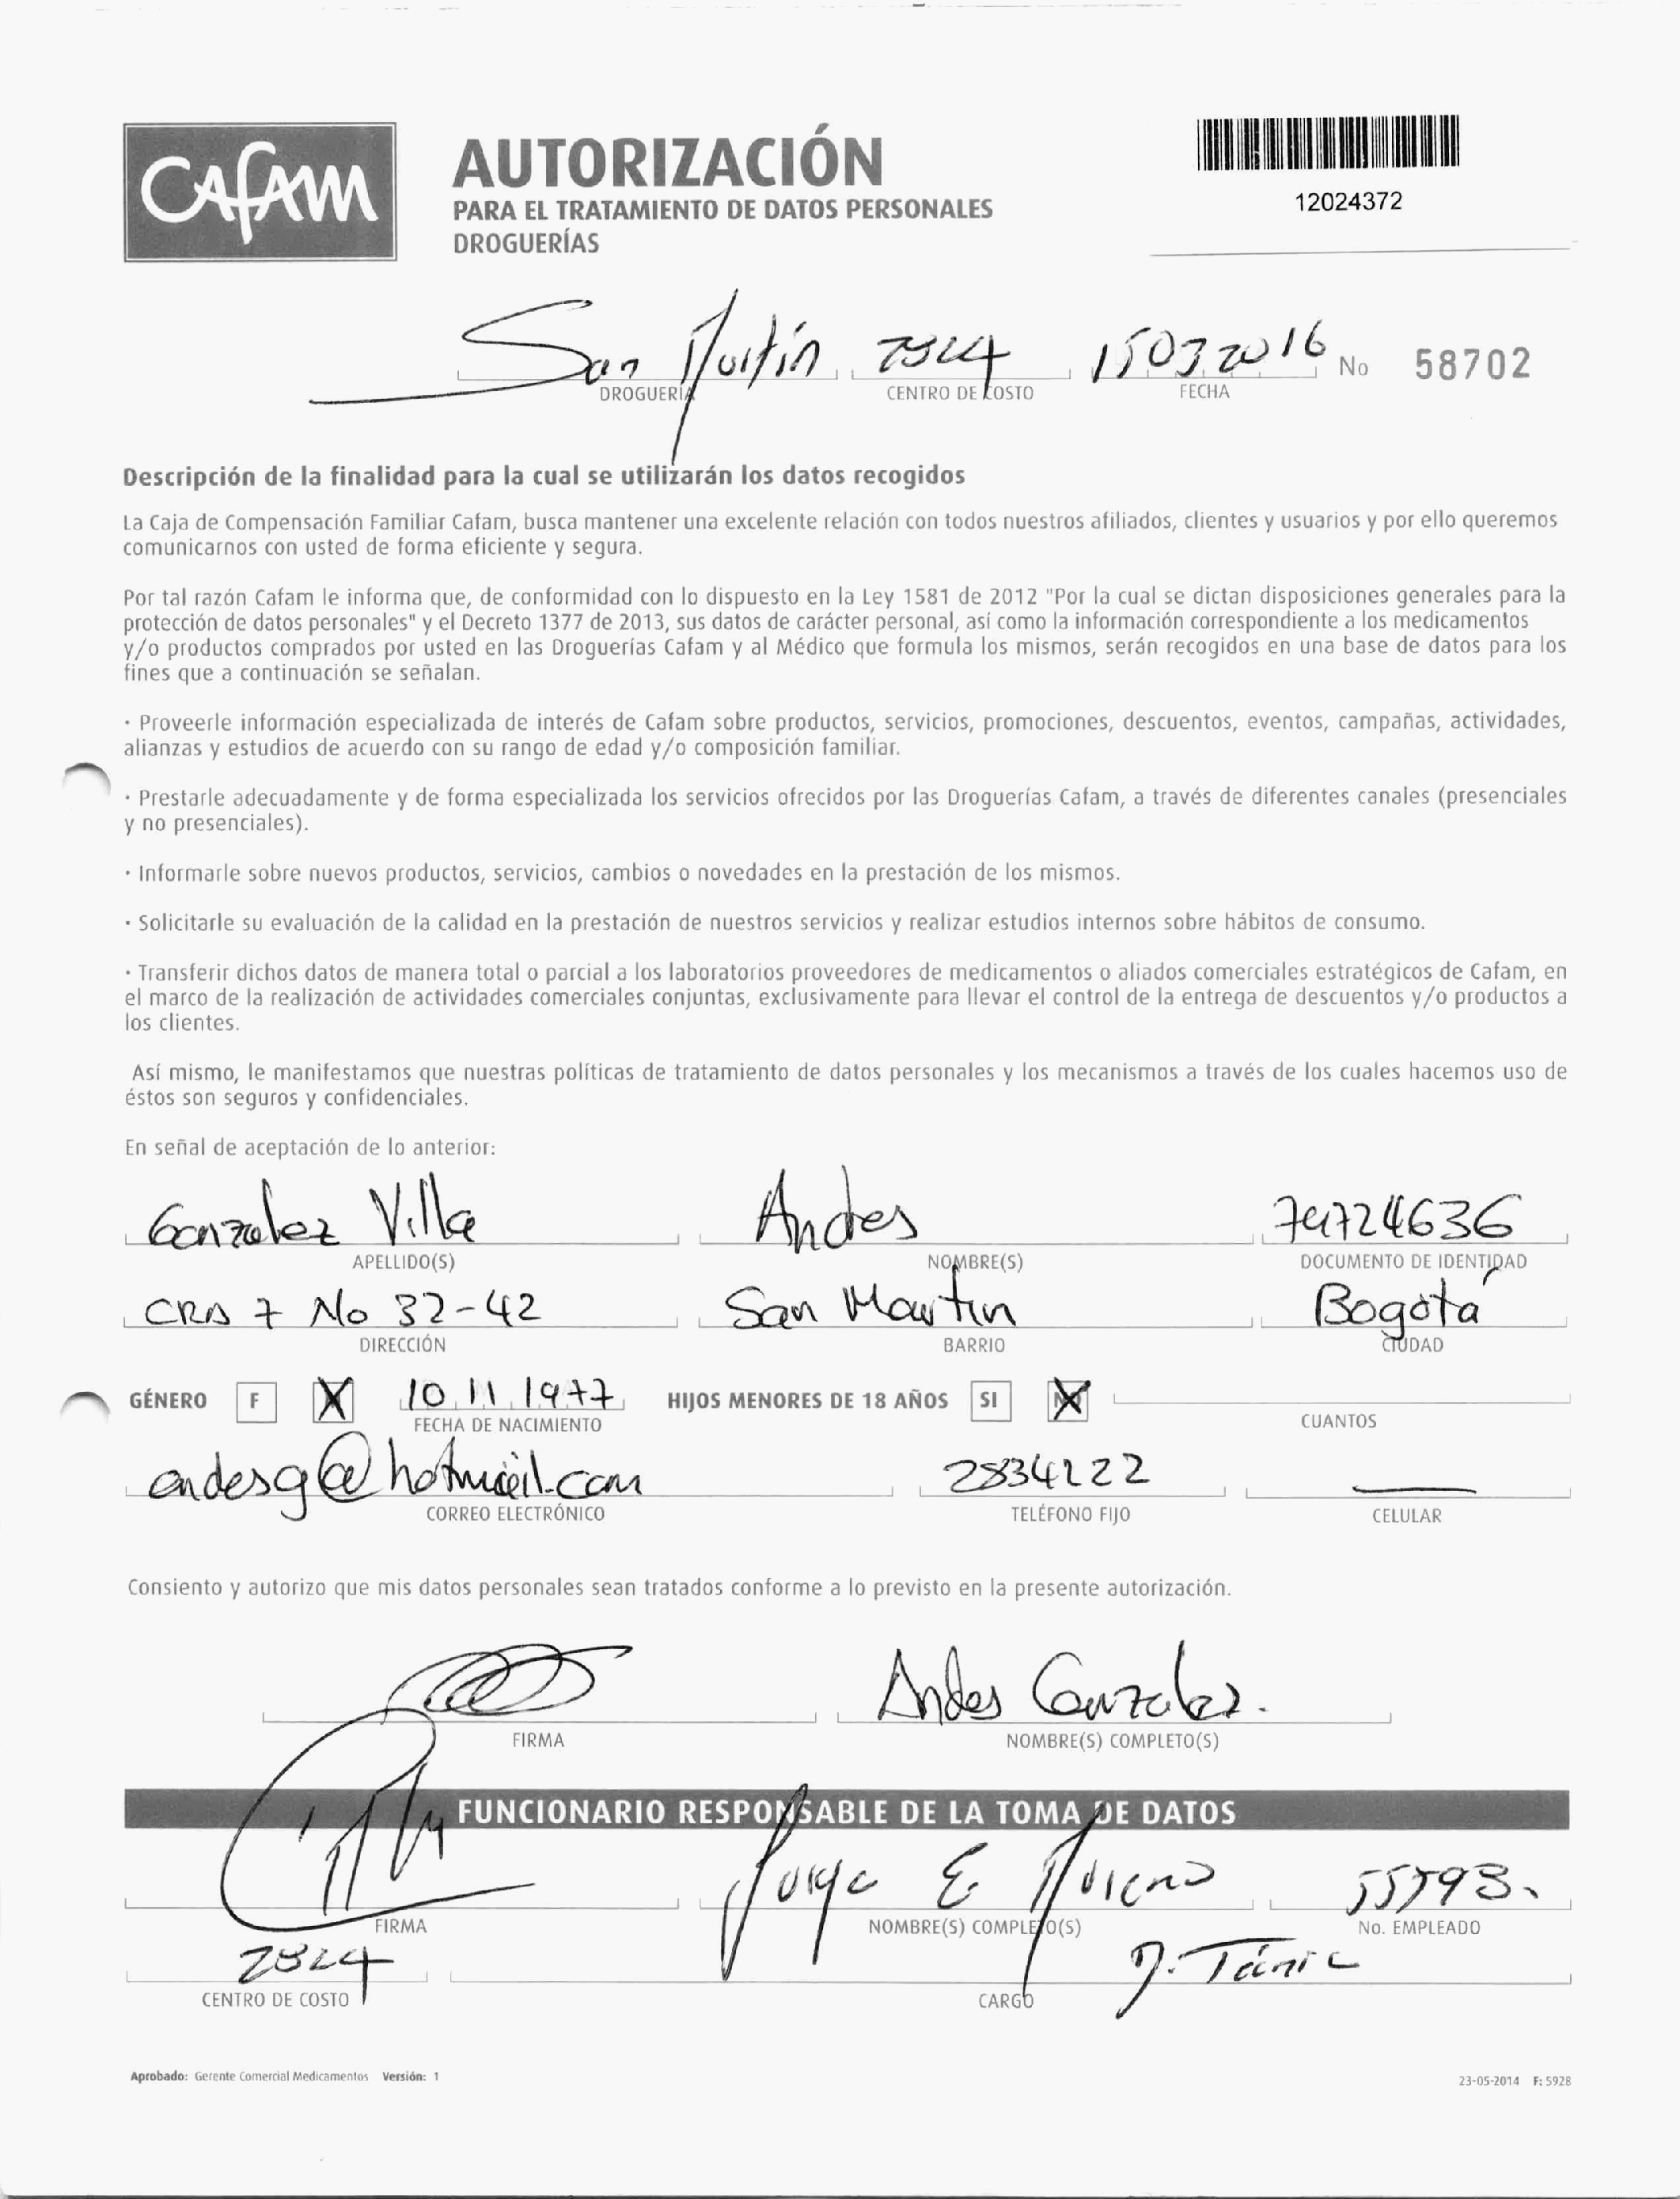 CAFAM
AUTORIZACIÓN
PARA EL TRATAMIENTO DE DATOS PERSONALES
DROGUERÍAS
12024372
San Martín 7824 15032016 No 58702
DROGUERÍA CENTRO DE COSTO FECHA
Descripción de la finalidad para la cual se utilizarán los datos recogidos
La Caja de Compensación Familiar Cafam, busca mantener una excelente relación con todos nuestros afiliados, clientes y usuarios y por ello queremos
comunicarnos con usted de forma eficiente y segura.
Por tal razón Cafam le informa que, de conformidad con lo dispuesto en la Ley 1581 de 2012 "Por la cual se dictan disposiciones generales para la
protección de datos personales" y el Decreto 1377 de 2013, sus datos de carácter personal, así como la información correspondiente a los medicamentos
y/o productos comprados por usted en las Droguerías Cafam y al Médico que formula los mismos, serán recogidos en una base de datos para los
fines que a continuación se señalan.
· Proveerle información especializada de interés de Cafam sobre productos, servicios, promociones, descuentos, eventos, campañas, actividades,
alianzas y estudios de acuerdo con su rango de edad y/o composición familiar.
· Prestarle adecuadamente y de forma especializada los servicios ofrecidos por las Droguerías Cafam, a través de diferentes canales (presenciales
y no presenciales).
· Informarle sobre nuevos productos, servicios, cambios o novedades en la prestación de los mismos.
· Solicitarle su evaluación de la calidad en la prestación de nuestros servicios y realizar estudios internos sobre hábitos de consumo.
· Transferir dichos datos de manera total o parcial a los laboratorios proveedores de medicamentos o aliados comerciales estratégicos de Cafam, en
el marco de la realización de actividades comerciales conjuntas, exclusivamente para llevar el control de la entrega de descuentos y/o productos a
los clientes.
Así mismo, le manifestamos que nuestras políticas de tratamiento de datos personales y los mecanismos a través de los cuales hacemos uso de
éstos son seguros y confidenciales.
En señal de aceptación de lo anterior:
Gonzalez Villa Andes 79724636
APELLIDO(S) NOMBRE(S) DOCUMENTO DE IDENTIDAD
CRA 7 No 32-42 San Martin Bogotá
DIRECCIÓN BARRIO CIUDAD
GÉNERO F X 10 11 1977 HIJOS MENORES DE 18 AÑOS SI X
FECHA DE NACIMIENTO CUANTOS
andesg@hotmail.com 2834222
CORREO ELECTRÓNICO TELÉFONO FIJO CELULAR
Consiento y autorizo que mis datos personales sean tratados conforme a lo previsto en la presente autorización.
Andes Gonzalez.
FIRMA NOMBRE(S) COMPLETO(S)
FUNCIONARIO RESPONSABLE DE LA TOMA DE DATOS
Jorge E. Moreno
FIRMA NOMBRE(S) COMPLETO(S) No. EMPLEADO
7824
CENTRO DE COSTO CARGO
Aprobado: Gerente Comercial Medicamentos Versión: 1 23-05-2014 F: 5928